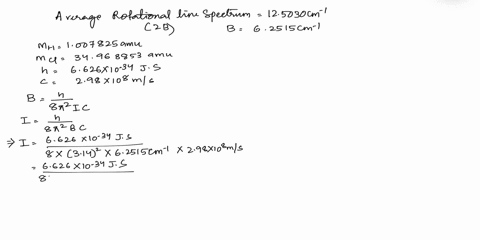 Average Rotational line Spectrum = 12.5030 cm⁻¹
(2B) B = 6.2515 cm⁻¹
mH = 1.007825 amu
mCl = 34.968853 amu
h = 6.626×10⁻³⁴ J.S
c = 2.98×10⁸ m/s
B = h / 8π² I C
I = h / 8π² B C
⇒ I = 6.626 ×10⁻³⁴ J.S / 8 × (3.14)² × 6.2515 cm⁻¹ × 2.98×10⁸ m/s
= 6.626 ×10⁻³⁴ J.S / 8.